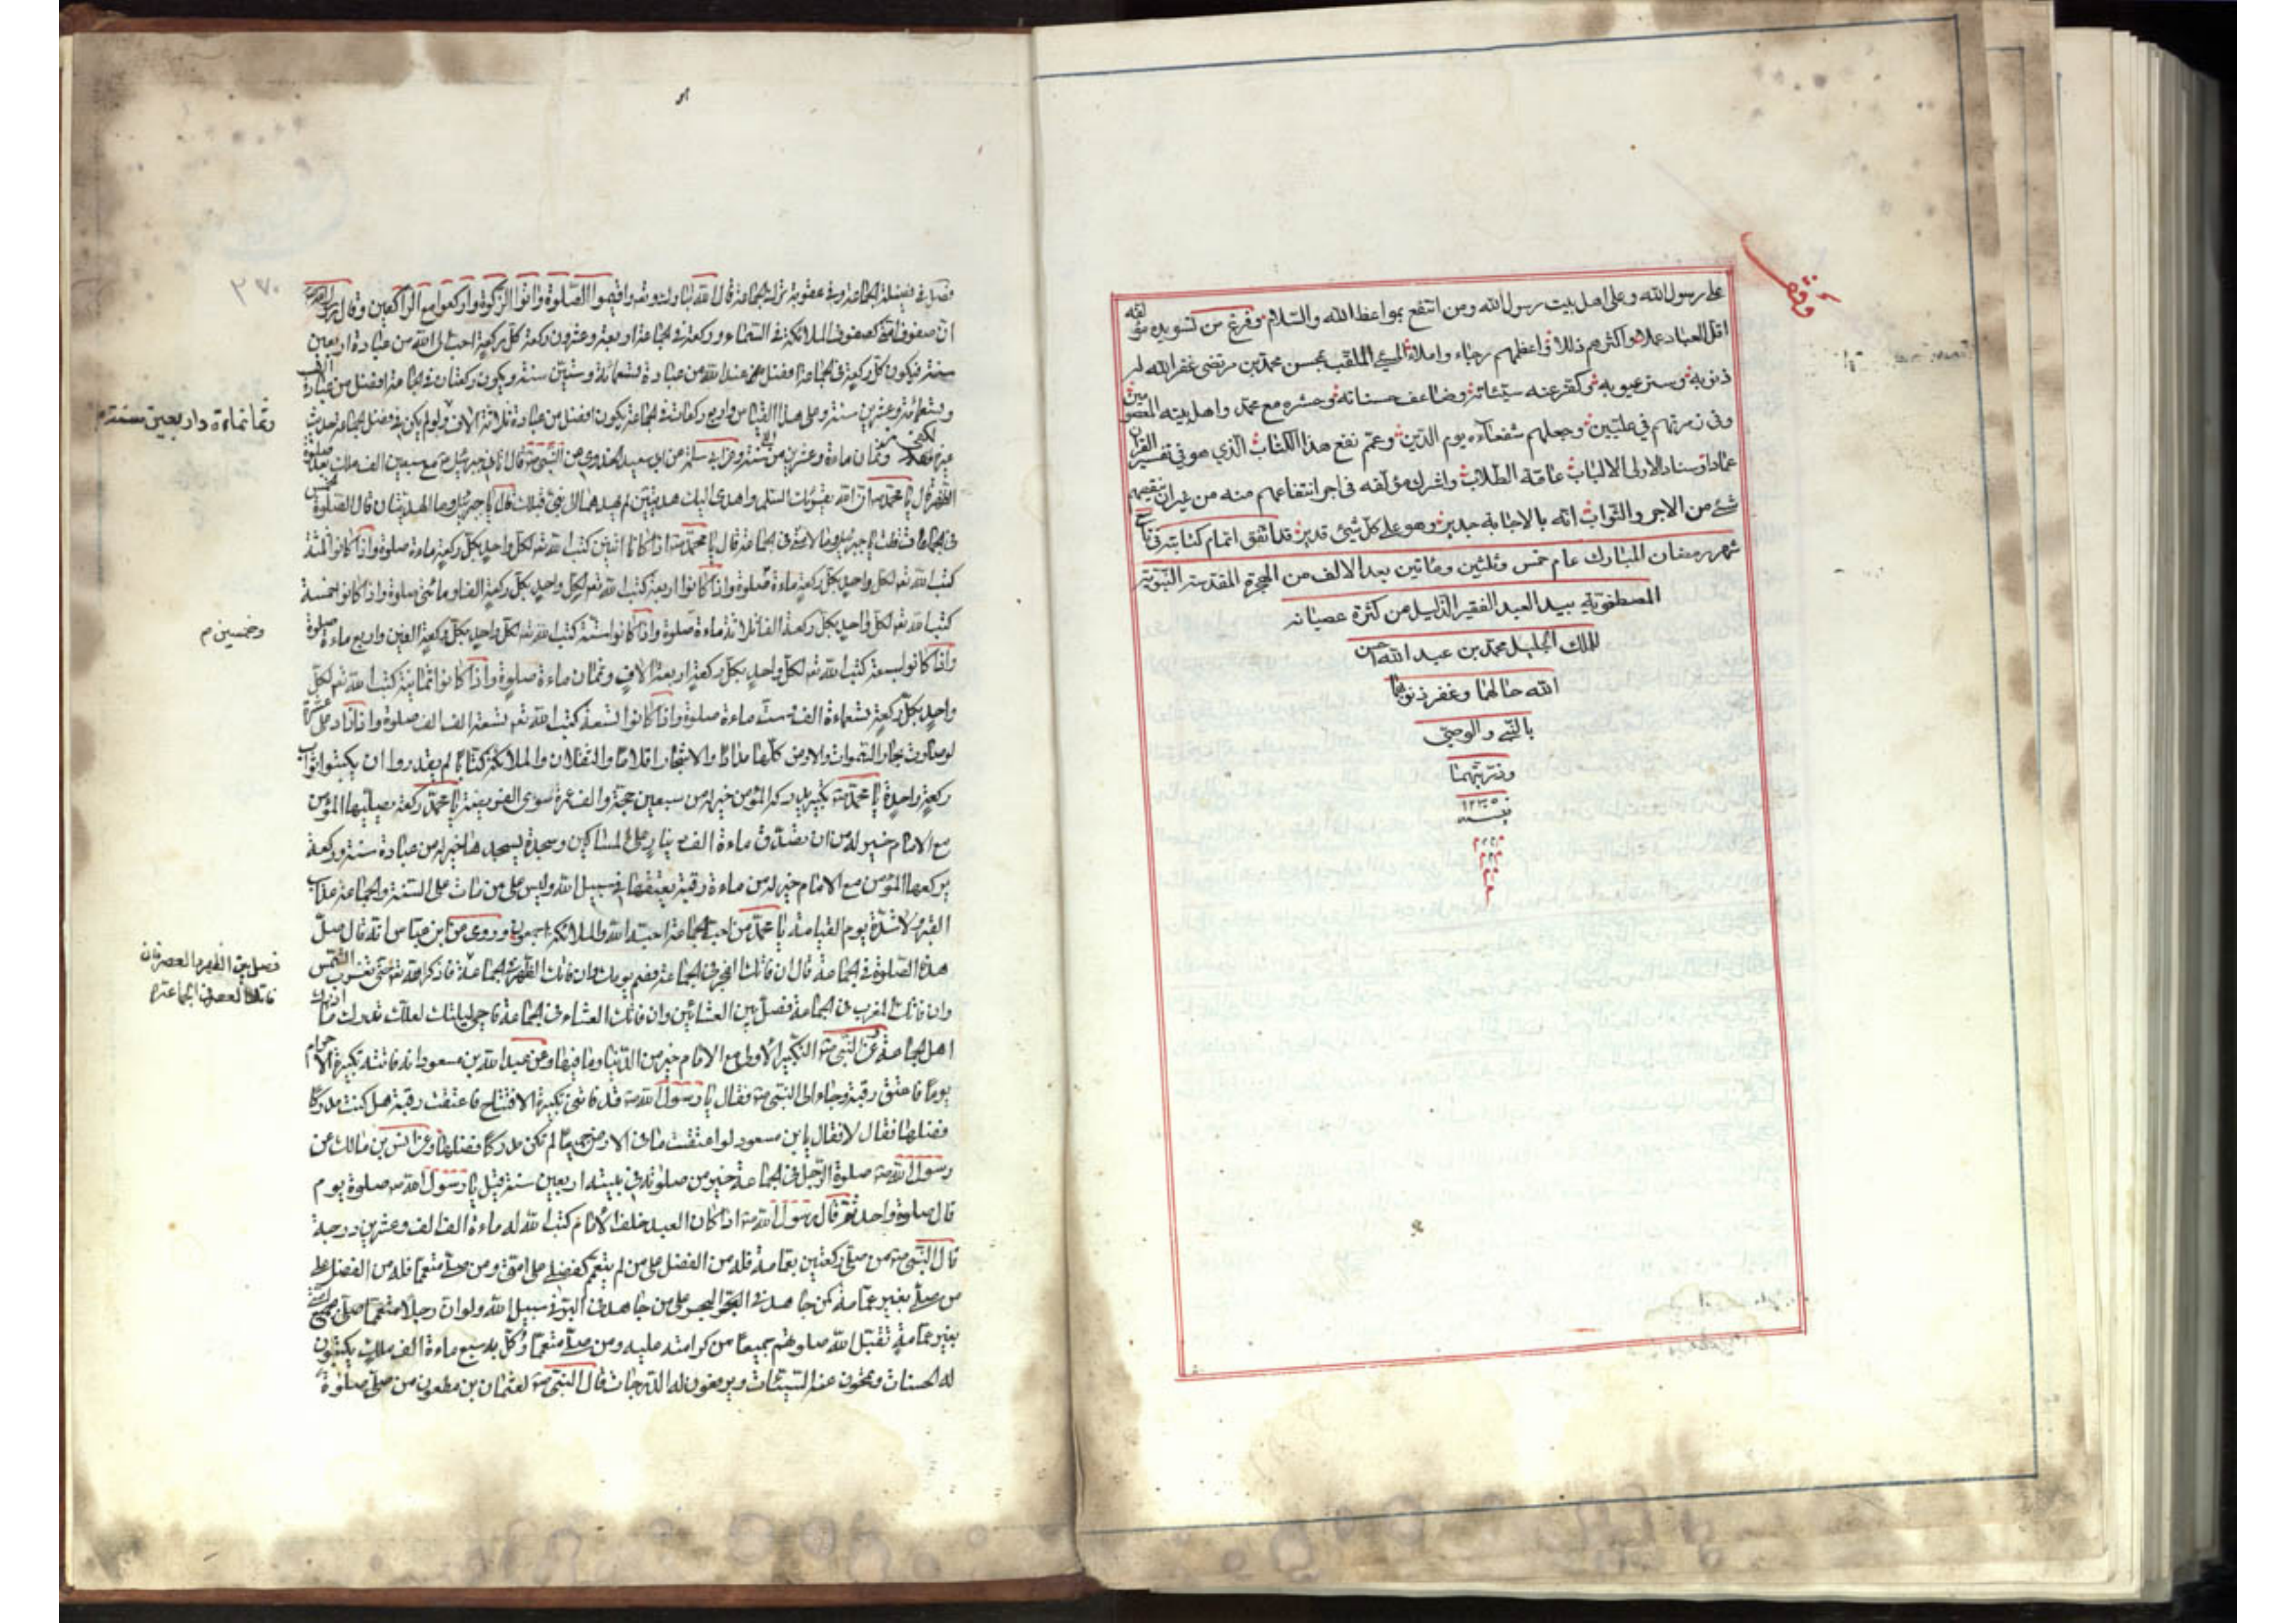 على رسول الله وعلى اهل بيت رسول الله ومن انتفع بمواعظ الله والسلام وفرغ من تسويده مؤلفه
اقل العباد عملا واكثرهم زللا واعظمهم رجاء واملا محمد بن مرتضى الملقب بمحسن غفر الله له
ذنوبه وستر عيوبه وكفر عنه سيئاته وضاعف حسناته وحشره مع محمد واهل بيته المعصومين
وفى زمرتهم في عليين وجعلهم شفعاءه يوم الدين وعمم نفع هذا الكتاب الذي هو في تفسير القران
عماد وسناد لاولى الالباب عامة الطلاب واشرك مؤلفه فى اجر انتفاعهم منه من غير ان ينقصهم
شئ من الاجر والثواب انه بالاجابة جدير وهو على كل شئ قدير قد اتفق اتمام كتابته فى تاسع
شهر رمضان المبارك عام خمس وثلثين ومأتين بعد الالف من الهجرة المقدسة النبوية
المصطفوية بيد العبد الفقير الذليل من كثرة عصيانه
للملك الجليل محمد بن عبد الله احسن
الله حالهما وغفر ذنوبهما
بالنبي والوصي
وذريتهما
١٢٣٥
فصل في فضيلة الجماعة وفي عقوبة ترك الجماعة قال الله تبارك وتعالى واقيموا الصلوة واتوا الزكوة واركعوا مع الراكعين وقال رسول الله
ان صفوف امتي كصفوف الملائكة في السماء وركعة في الجماعة اربعة وعشرون ركعة كل ركعة احب الى الله من عبادة اربعين
سنة فيكون كل ركعة في الجماعة افضل عند الله من عبادة تسعمائة وستين سنة ويكون ركعتان في جماعة افضل من عبادة الف
وتسعمائة وعشرين سنة وعلى هذا القياس واربع ركعات في الجماعة يكون افضل من عبادة ثلاثة الاف ولو لم يكن في فضل الجماعة حديث
وثمانمائة واربعين سنة م
غيره لكفى وعن ابى سعيد الخدري عن النبي ص قال اتانى جبرئيل مع سبعين الف ملك بعد صلوة
الظهر قال يا محمد ان الله يقرئك السلم واهدى اليك هديتين لم يهدهما الى نبي قبلك قلت يا جبرئيل وما الهديتان قال الصلوة الخمس
فى الجماعة قلت يا جبرئيل وما لامتى فى الجماعة قال يا محمد اذا كانا اثنين كتب الله لكل واحد بكل ركعة ماءة صلوة واذا كانوا ثلثة
كتب الله لكل واحد بكل ركعة ماءة صلوة واذا كانوا اربعة كتب الله لكل واحد بكل ركعة الفا ومأتى صلوة واذا كانوا خمسة
وخمسين م
كتب الله لكل واحد بكل ركعة الفا ثلاثماءة صلوة واذا كانوا ستة كتب الله لكل واحد بكل ركعة الفين واربع ماءة صلوة
واذا كانوا سبعة كتب الله لكل واحد بكل ركعة اربعة الاف وثمان ماءة صلوة واذا كانوا ثمانية كتب الله لكل
واحد بكل ركعة تسعماءة الف وست ماءة صلوة واذا كانوا تسعة كتب الله تسعة الف الف صلوة واذا زاد على عشرة
لو صارت بحار السموات والارض كلها مدادا والاشجار اقلاما والثقلان والملائكة كتابا لم يقدروا ان يكتبوا ثواب
ركعة واحدة يا محمد تكبيرة يدركها المؤمن خير له من سبعين حجة والف عمرة سوى الفريضة يا محمد ركعة يصليها المؤمن
مع الامام خير له من ان يتصدق ماءة الف دينار على المساكين وسجدة يسجدها خير له من عبادة سنة وركعة
يركعها المؤمن مع الامام خير له من ماءة رقبة يعتقها في سبيل الله وليس على من مات على السنة والجماعة عذاب
القبر ولا شدة يوم القيامة يا محمد من احب الجماعة احبه الله والملائكة اجمعون وروى عن ابن عباس انه قال صل
هذه الصلوة فى الجماعة قال ان فاتك الفجر فى الجماعة فصم يومك وان فاتك الظهر فى الجماعة فاذكر الله حتى تغرب الشمس
فصل بين الظهر والعصر وان
فاتك العصر في الجماعة م
وان فاتك المغرب فى الجماعة فصل بين العشائين وان فاتك العشاء فى الجماعة فاحي ليلتك لعلك تدرك ما ادرك
اهل الجماعة عن النبي التكبير الاولى مع الامام خير من الدنيا وما فيها وعن عبد الله بن مسعود انه فاتته تكبيرة الاحرام
يوما فاعتق رقبة وجاء الى النبي فقال يا رسول الله قد فاتني تكبيرة الافتتاح فاعتقت رقبة هل كنت مدركا
فضلها فقال لا فقال يا بن مسعود لو اعتقت ما فى الارض جميعا لم تكن مدركا فضلها وعن انس بن مالك عن
رسول الله صلوة الرجل فى الجماعة خير من صلوته في بيته اربعين سنة قيل يا رسول الله صلوة يوم
قال صلوة واحدة ثم قال رسول الله اذا كان العبد خلف الامام كتب الله له ماءة الف الف وعشرين درجة
قال النبي من صلى ركعتين بعمامة فله من الفضل على من لم يتعمم كفضلي على امتي ومن صلى متعمما فله من الفضل على
من صلى بغير عمامة كمن جاهد في البحر على من جاهد في البر في سبيل الله ولو ان رجلا متعمما صلى بجميع امتي
بغير عمامة تقبل الله صلوتهم جميعا من كرامته عليه ومن صلى متعمما وكل به سبع ماءة الف ملك يكتبون
له الحسنات ويمحون عنه السيئات ويرفعون له الدرجات قال النبي لعثمان بن مظعون من صلى صلوة